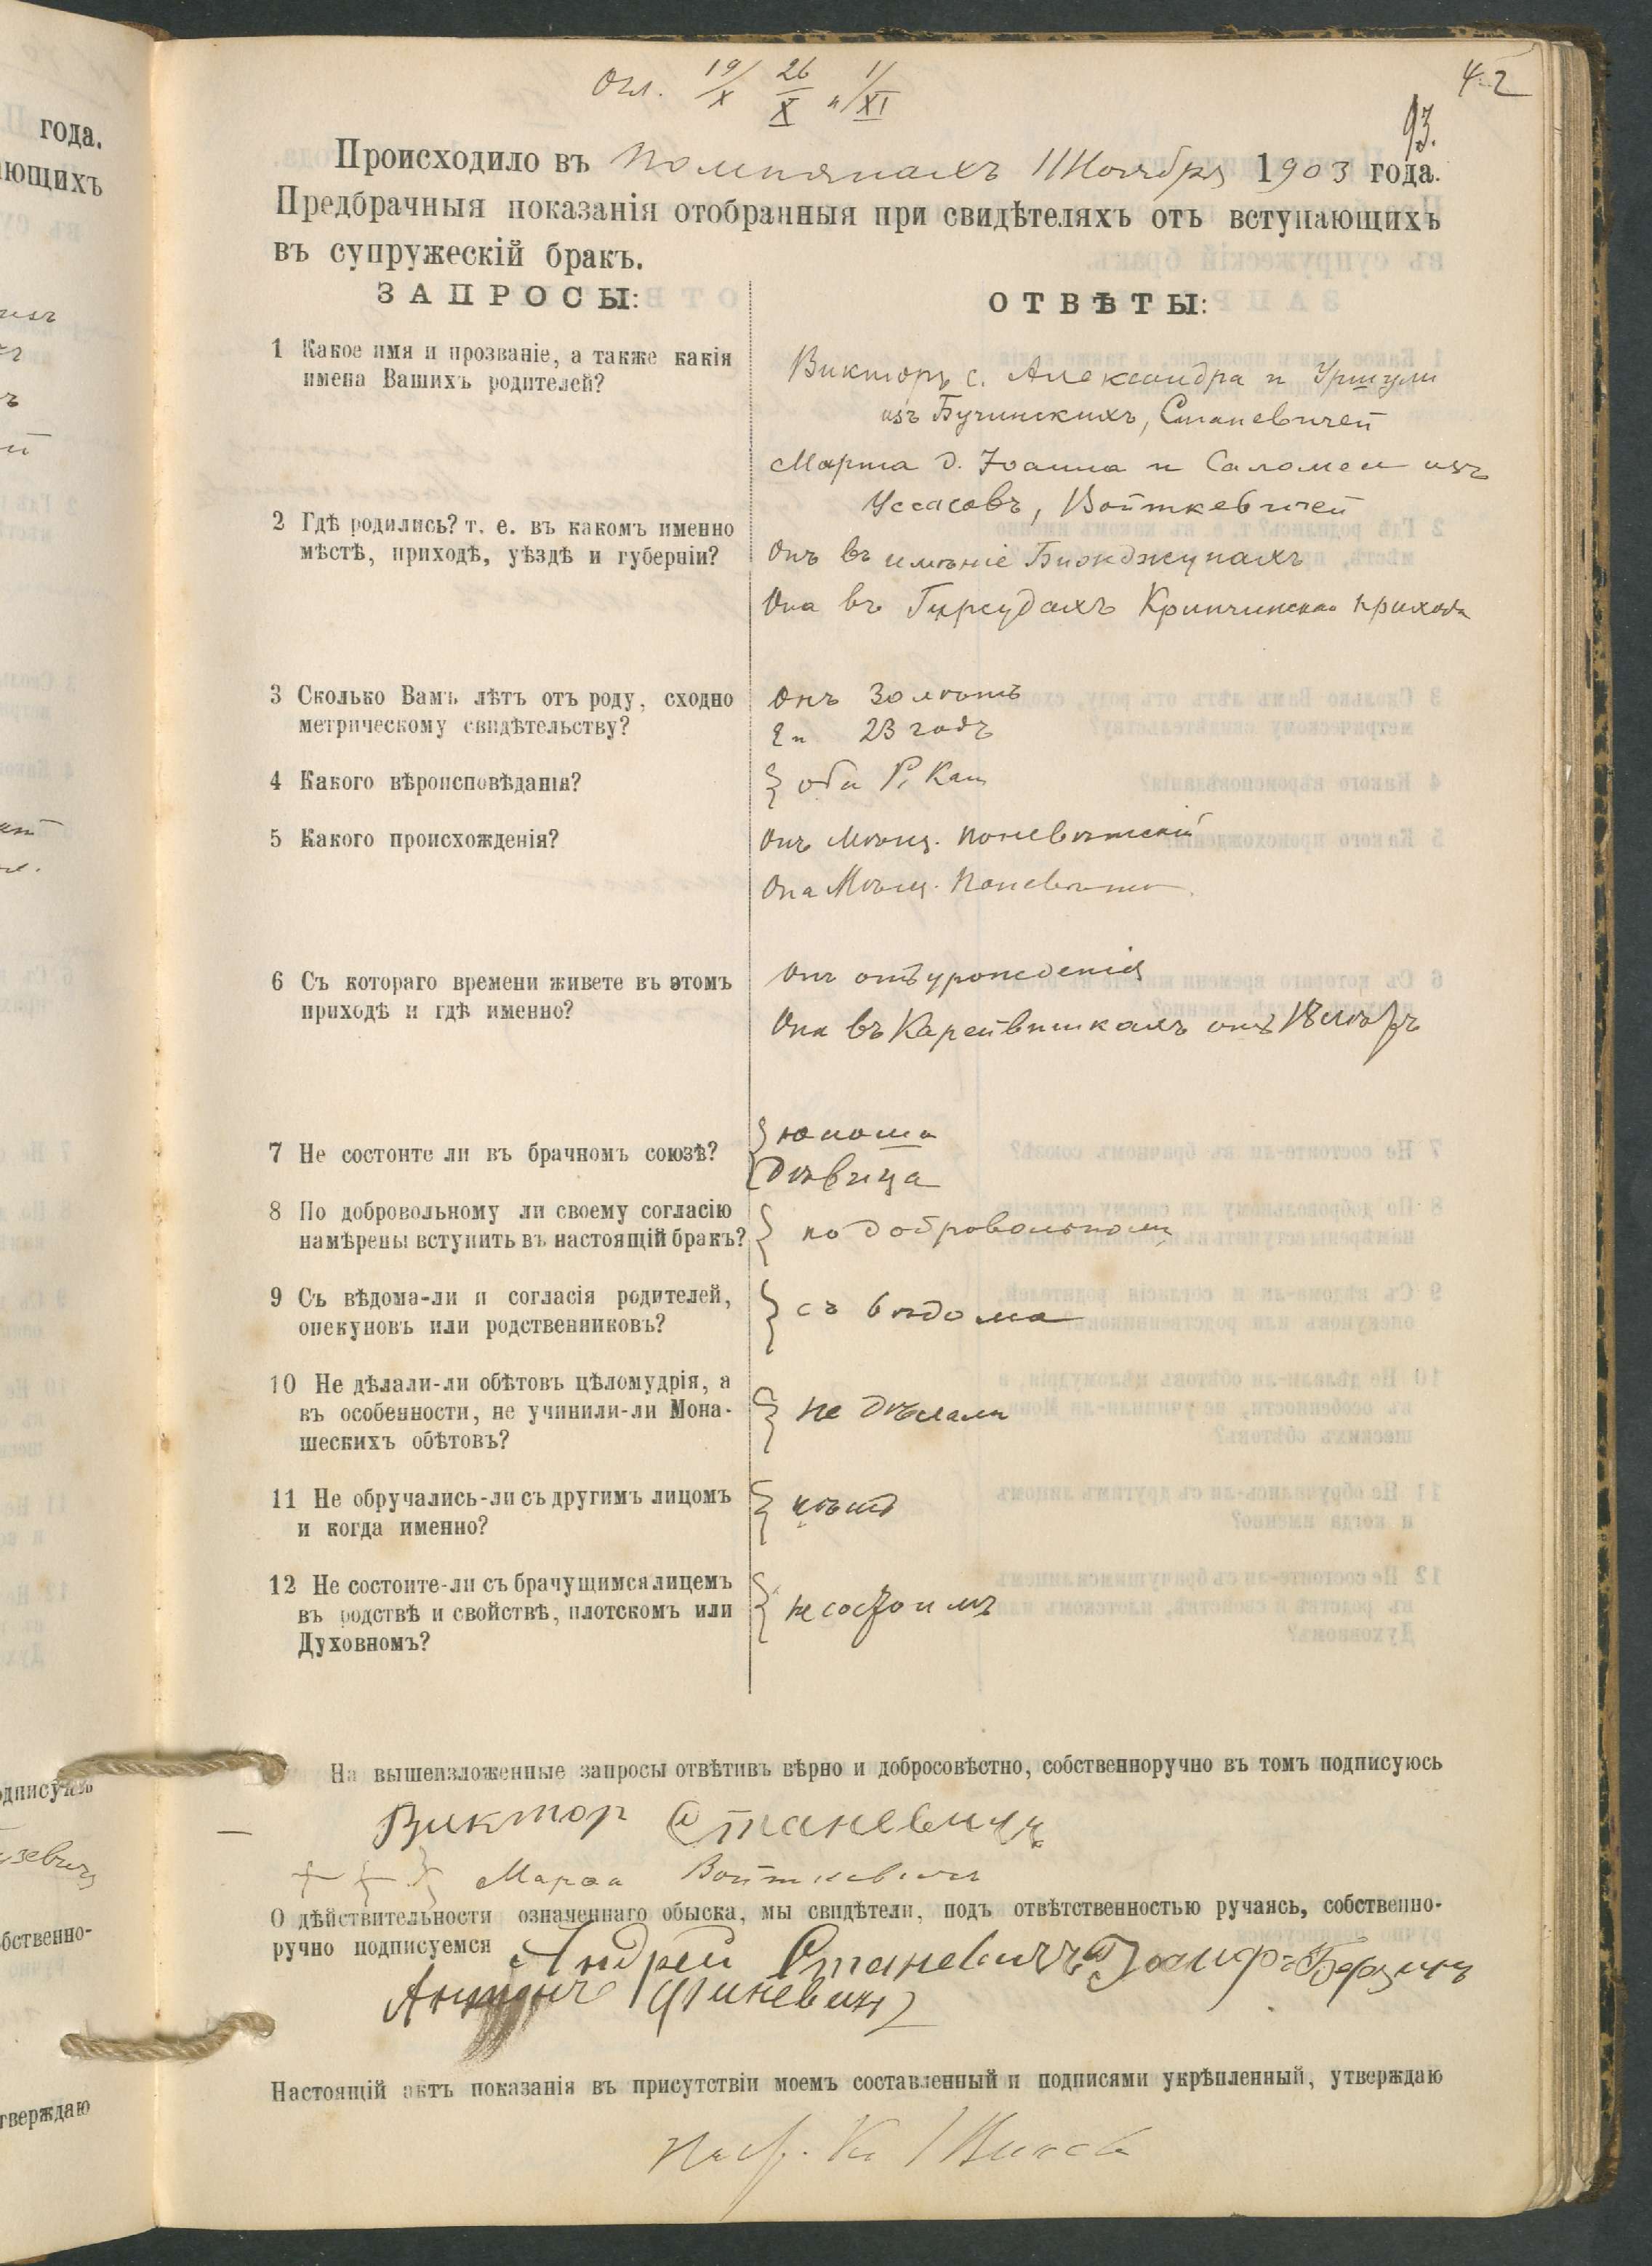 года.
ающихъ
Огл. 19/X 26/X и 1/XI
42
93.
Происходило въ Помпянахъ 11 Ноября 1903 года.
Предбрачныя показанія отобранныя при свидѣтеляхъ отъ вступающихъ
въ супружескій бракъ.
ЗАПРОСЫ:
ОТВѢТЫ:
1 Какое имя и прозваніе, а также какія
имена Вашихъ родителей?
Викторъ с. Александра и Уршули
изъ Бучинскихъ, Станевичей
Марта д. Іоанна и Саломеи изъ
Уссасовъ, Войткевичей
2 Гдѣ родились? т. е. въ какомъ именно
мѣстѣ, приходѣ, уѣздѣ и губерніи?
Онъ въ имѣніе
Она въ Крипчинскаго прихода
3 Сколько Вамъ лѣтъ отъ роду, сходно
метрическому свидѣтельству?
Онъ 30 лѣтъ
23 годъ
4 Какого вѣроисповѣданія?
оба Р. Кат
5 Какого происхожденія?
Онъ Мѣщ. Поневѣжскій
Она Мѣщ.
6 Съ котораго времени живете въ этомъ
приходѣ и гдѣ именно?
Онъ отъ урожденія
Она въ Карейвишкахъ отъ
7 Не состоите ли въ брачномъ союзѣ?
юноша
Дѣвица
8 По добровольному ли своему согласію
намѣрены вступить въ настоящій бракъ?
по добровольному
9 Съ вѣдома-ли и согласія родителей,
опекуновъ или родственниковъ?
съ вѣдома
10 Не дѣлали-ли обѣтовъ цѣломудрія, а
въ особенности, не учинили-ли Мона-
шескихъ обѣтовъ?
не дѣлали
11 Не обручались-ли съ другимъ лицомъ
и когда именно?
нѣтъ
12 Не состоите-ли съ брачущимся лицемъ
въ родствѣ и свойствѣ, плотскомъ или
Духовномъ?
не состоимъ
На вышеизложенные запросы отвѣтивъ вѣрно и добросовѣстно, собственноручно въ томъ подписуюсь
Виктор Станевичъ
+ + + Марта Войткевичъ
О дѣйствительности означеннаго обыска, мы свидѣтели, подъ отвѣтственностью ручаясь, собственно-
ручно подписуемся Андрей Станевичъ
Антонъ
Настоящій актъ показанія въ присутствіи моемъ составленный и подписями укрѣпленный, утверждаю